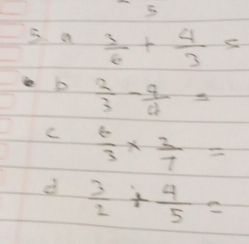 5
5 a 3/6 + 4/3 =
b 2/3 - 9/4 =
c 6/3 × 2/7 =
d 3/2 ÷ 4/5 =